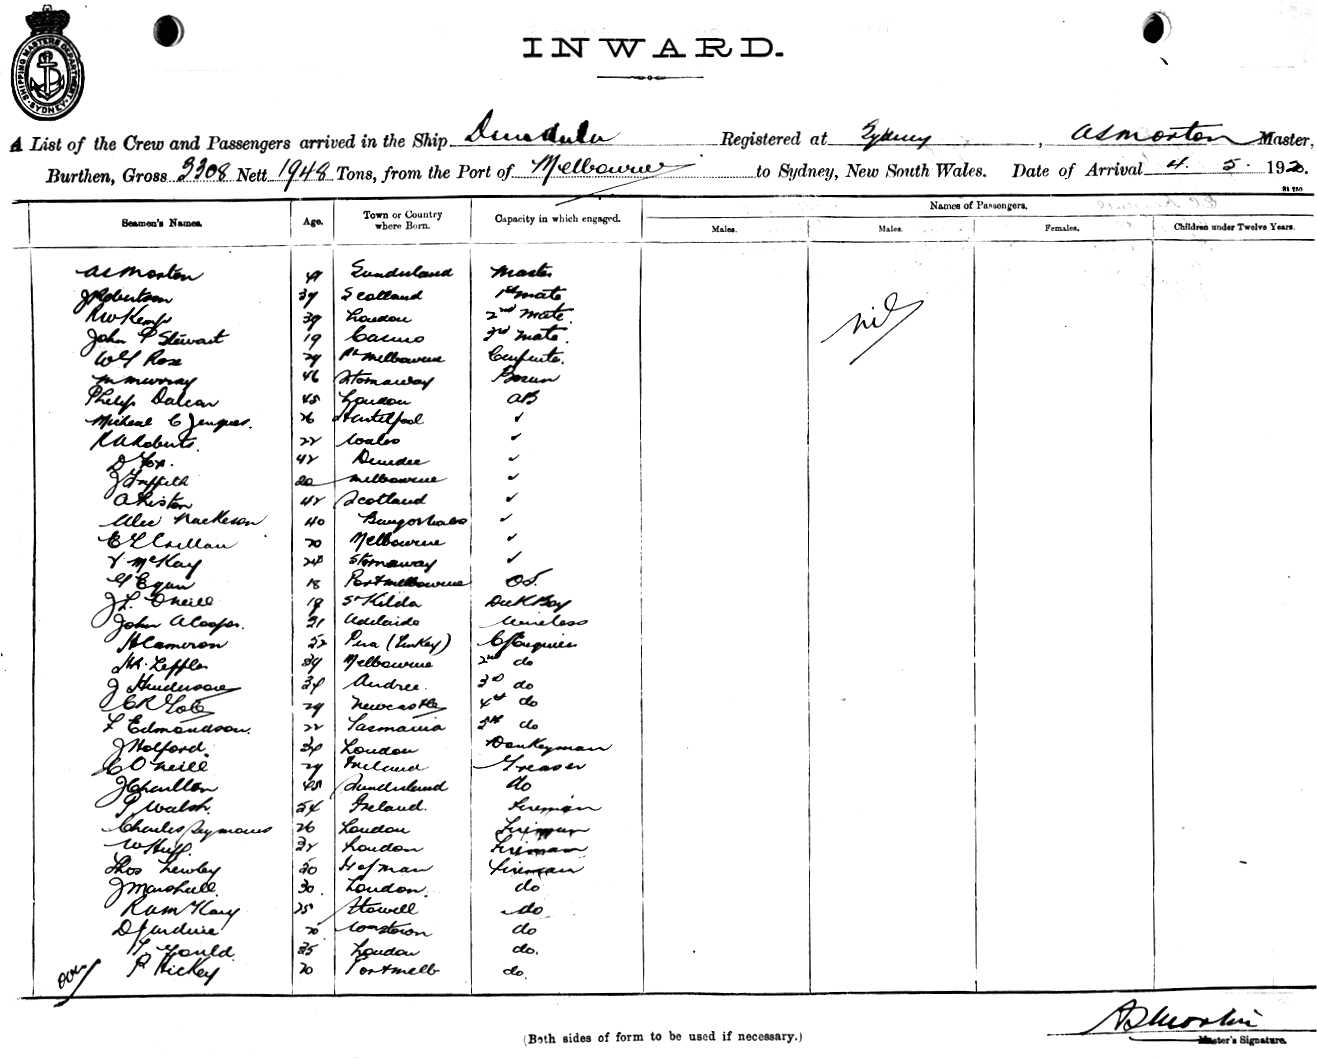 SHIPPING MASTERS DEPARTMENT SYDNEY
INWARD.
A List of the Crew and Passengers arrived in the Ship Registered at Sydney, AS Morton Master,
Burthen, Gross 3308 Nett 1948 Tons, from the Port of Melbourne to Sydney, New South Wales. Date of Arrival 4. 5. 1920.
Seamen's Names. Age. Town or Country where Born. Capacity in which engaged. Names of Passengers.
Males. Males. Females. Children under Twelve Years.
AS Morton Sunderland Master
J Robertson 39 Scotland 1st mate
RW Kemp 39 London 2nd mate. nil
John P Stewart 19 Casino 3rd mate.
WG Rose 29 Pt Melbourne
M Murray 46 Stornaway Bosun
Philip 45 London AB
Micheal C 26 Hartlepool ✓
RA Roberts. 22 Wales ✓
D Fox. 42 Dundee ✓
J Griffith 20 Melbourne ✓
42 Scotland ✓
Alec 40 ✓
20 Melbourne ✓
McKay Stornaway ✓
G Egan 18 Port Melbourne OS.
J L. O'Neill 19 St Kilda Deck Boy
John A Cooper. 21 Adelaide Wireless
H Cameron 52 (Turkey)
Leffler 39 Melbourne 2nd do
J Henderson 34 3rd do
29 Newcastle 4th do
F Edmondson. 22 Tasmania 5th do
J Holford. 34 London Donkeyman
C O'Neill 29 Ireland Greaser
J Charlton 45 Sunderland do
P Walsh. 54 Ireland. Fireman
Charles Seymour 26 London Fireman
W Huff. 32 London Fireman
Thos Newley 50 I of Man Fireman
J Marshall 30 London. do
25 do
D Jardine 20 do
Gould. 35 London do.
P Hickey 20 Port Melb do.
over
AS Morton
(Both sides of form to be used if necessary.)
Master's Signature.